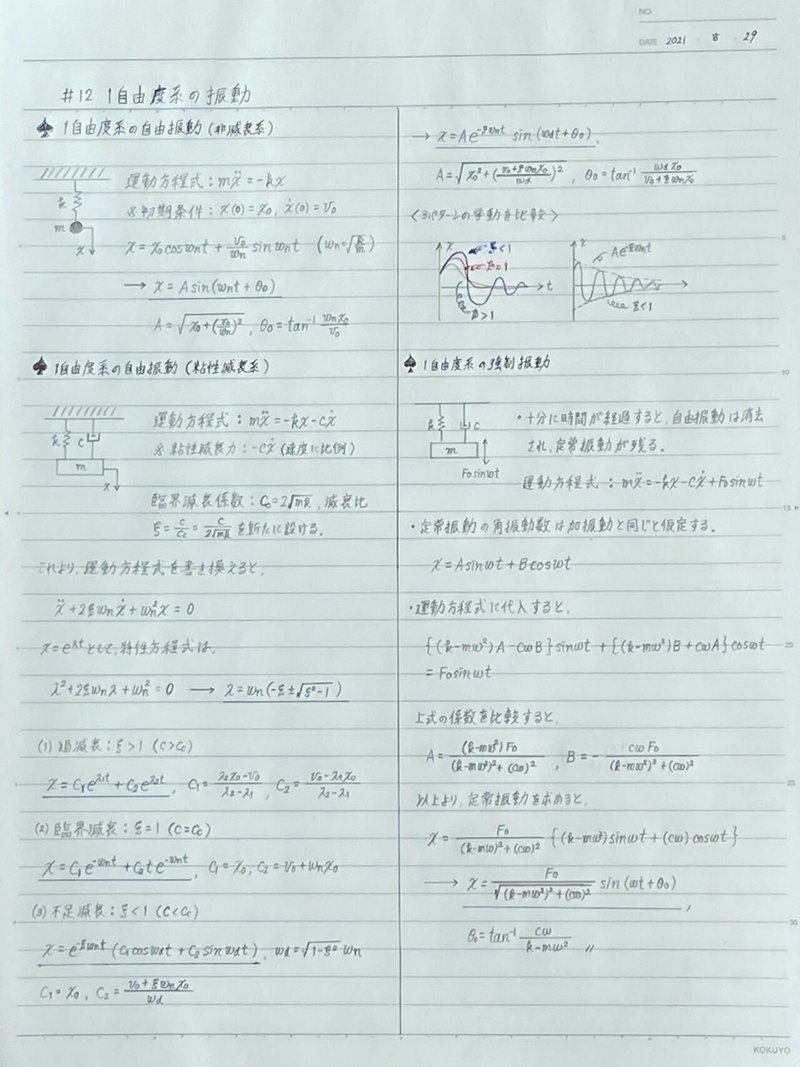 NO.
DATE 2021 ・ 8 ・ 29
#12 1自由度系の振動
♠ 1自由度系の自由振動 (非減衰系)
k
m
x
運動方程式：mẍ=-kx
※初期条件：x(0)=x₀, ẋ(0)=v₀
x=x₀cosωnt+v₀/ωn sinωnt (ωn=√(k/m))
→ x=Asin(ωnt+θ₀)
A=√(x₀+(v₀/ωn)²), θ₀=tan⁻¹ ωnx₀/v₀
♠ 1自由度系の自由振動 (粘性減衰系)
k
c
m
x
運動方程式：mẍ=-kx-cẋ
※ 粘性減衰力：-cẋ (速度に比例)
臨界減衰係数：Cc=2√mk, 減衰比
ξ=C/Cc=C/2√mkを新たに設ける。
これより、運動方程式を書き換えると、
ẍ+2ξωnẋ+ωn²x=0
x=e^λtとして、特性方程式は、
λ²+2ξωnλ+ωn²=0 → λ=ωn(-ξ±√(ξ²-1))
(1) 過減衰：ξ>1 (C>Cc)
x=C₁e^λ₁t+C₂e^λ₂t, C₁=(λ₂x₀-v₀)/(λ₂-λ₁), C₂=(v₀-λ₁x₀)/(λ₂-λ₁)
(2) 臨界減衰：ξ=1 (C=Cc)
x=C₁e^-ωnt+C₂te^-ωnt, C₁=x₀, C₂=v₀+ωnx₀
(3) 不足減衰：ξ<1 (C<Cc)
x=e^-ξωnt(C₁cosωdt+C₂sinωdt), ωd=√(1-ξ²)ωn
C₁=x₀, C₂=(v₀+ξωnx₀)/ωd
→ x=Ae^-ξωnt sin(ωdt+θ₀)
A=√(x₀²+((v₀+ξωnx₀)/ωd)²), θ₀=tan⁻¹ ωdx₀/(v₀+ξωnx₀)
〈3パターンの挙動を比較〉
x
ξ<1
ξ=1
ξ>1
t
x
Ae^-ξωnt
ξ<1
♠ 1自由度系の強制振動
k
c
m
F₀sinωt
・十分に時間が経過すると、自由振動は消去
され、定常振動が残る。
運動方程式：mẍ=-kx-cẋ+F₀sinωt
・定常振動の角振動数は加振動と同じと仮定する。
x=Asinωt+Bcosωt
・運動方程式に代入すると、
{(k-mω²)A-cωB}sinωt+{(k-mω²)B+cωA}cosωt
=F₀sinωt
上式の係数を比較すると、
A=(k-mω²)F₀/((k-mω²)²+(cω)²), B=-cωF₀/((k-mω²)²+(cω)²)
以上より、定常振動を求めると、
x=F₀/((k-mω)²+(cω)²){(k-mω²)sinωt+(cω)cosωt}
→ x=F₀/√((k-mω²)²+(cω)²) sin(ωt+θ₀),
θ₀=tan⁻¹ cω/(k-mω²) 〃
KOKUYO